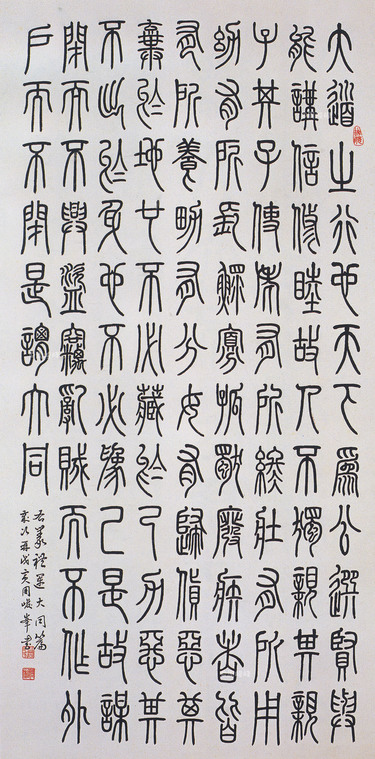 大道之行也天下為公選賢與
能講信修睦故人不獨親其親
子其子使老有所終壯有所用
幼有所長鰥寡孤獨廢疾者皆
有所養男有分女有歸貨惡其
棄於地也不必藏於己力惡其
不出於身也不必為己是故謀
閉而不興盜竊亂賊而不作外
戶而不閉是謂大同
右篆禮運大同篇
歲次亥周峻峯書